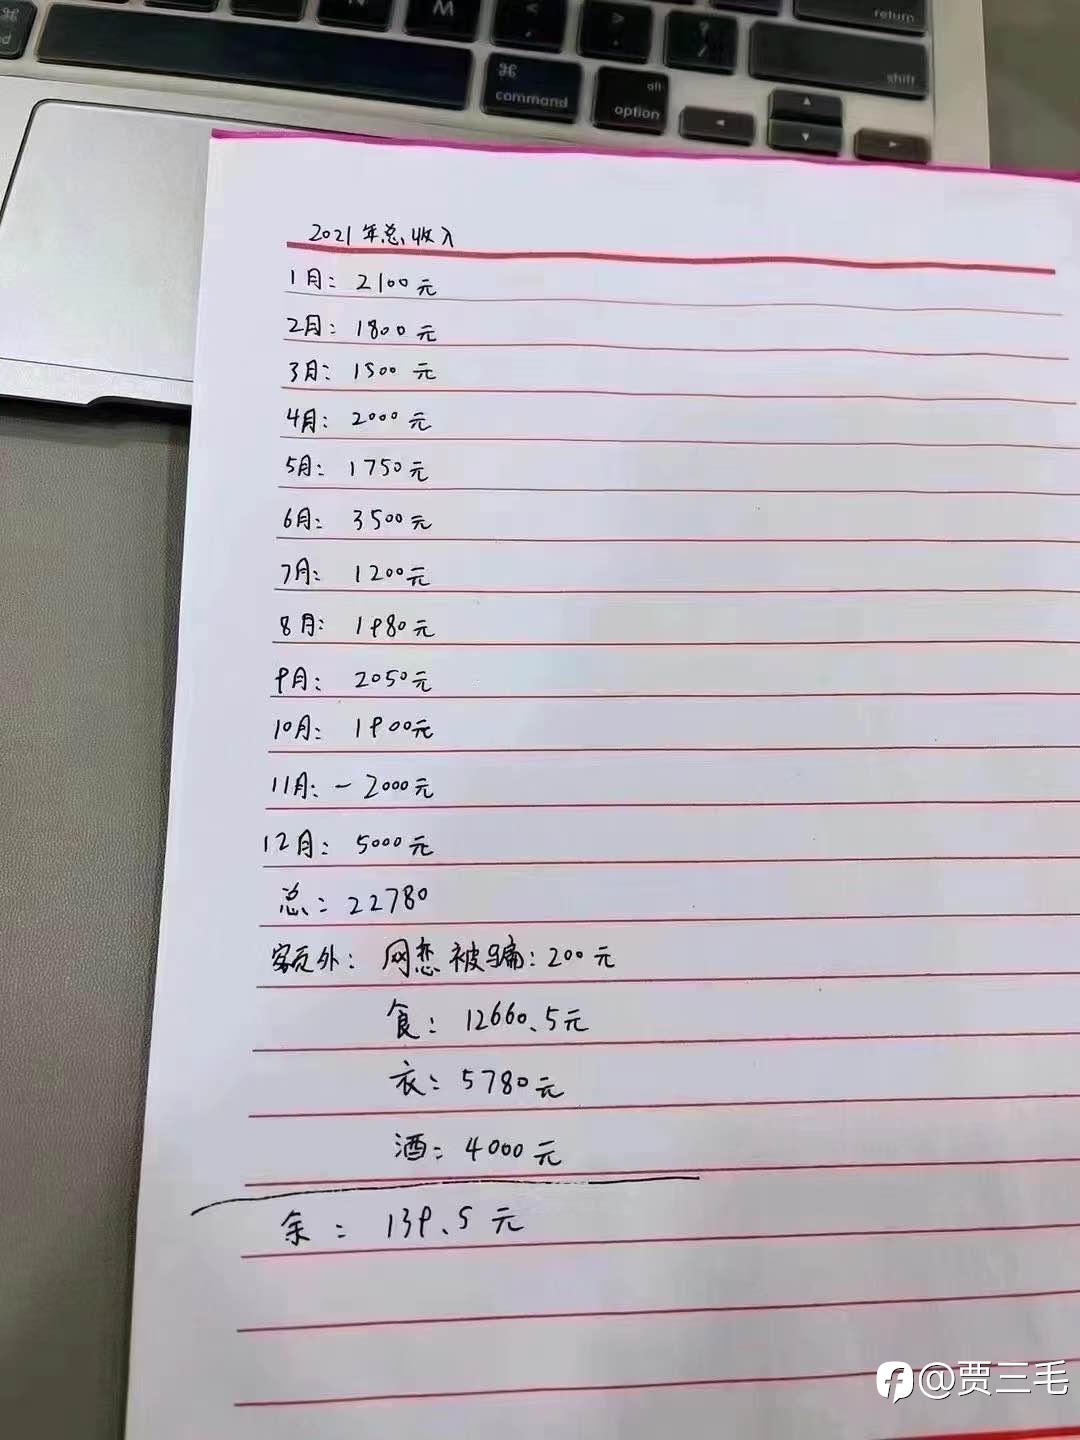 return
shift
⌘
command
alt
option
W
<
,
>
.
?
/
2021年总收入
1月: 2100元
2月: 1800元
3月: 1500元
4月: 2000元
5月: 1750元
6月: 3500元
7月: 1200元
8月: 1980元
9月: 2050元
10月: 1900元
11月: -2000元
12月: 5000元
总: 22780
额外: 网恋被骗: 200元
食: 12660.5元
衣: 5780元
酒: 4000元
余: 139.5元
@贾三毛